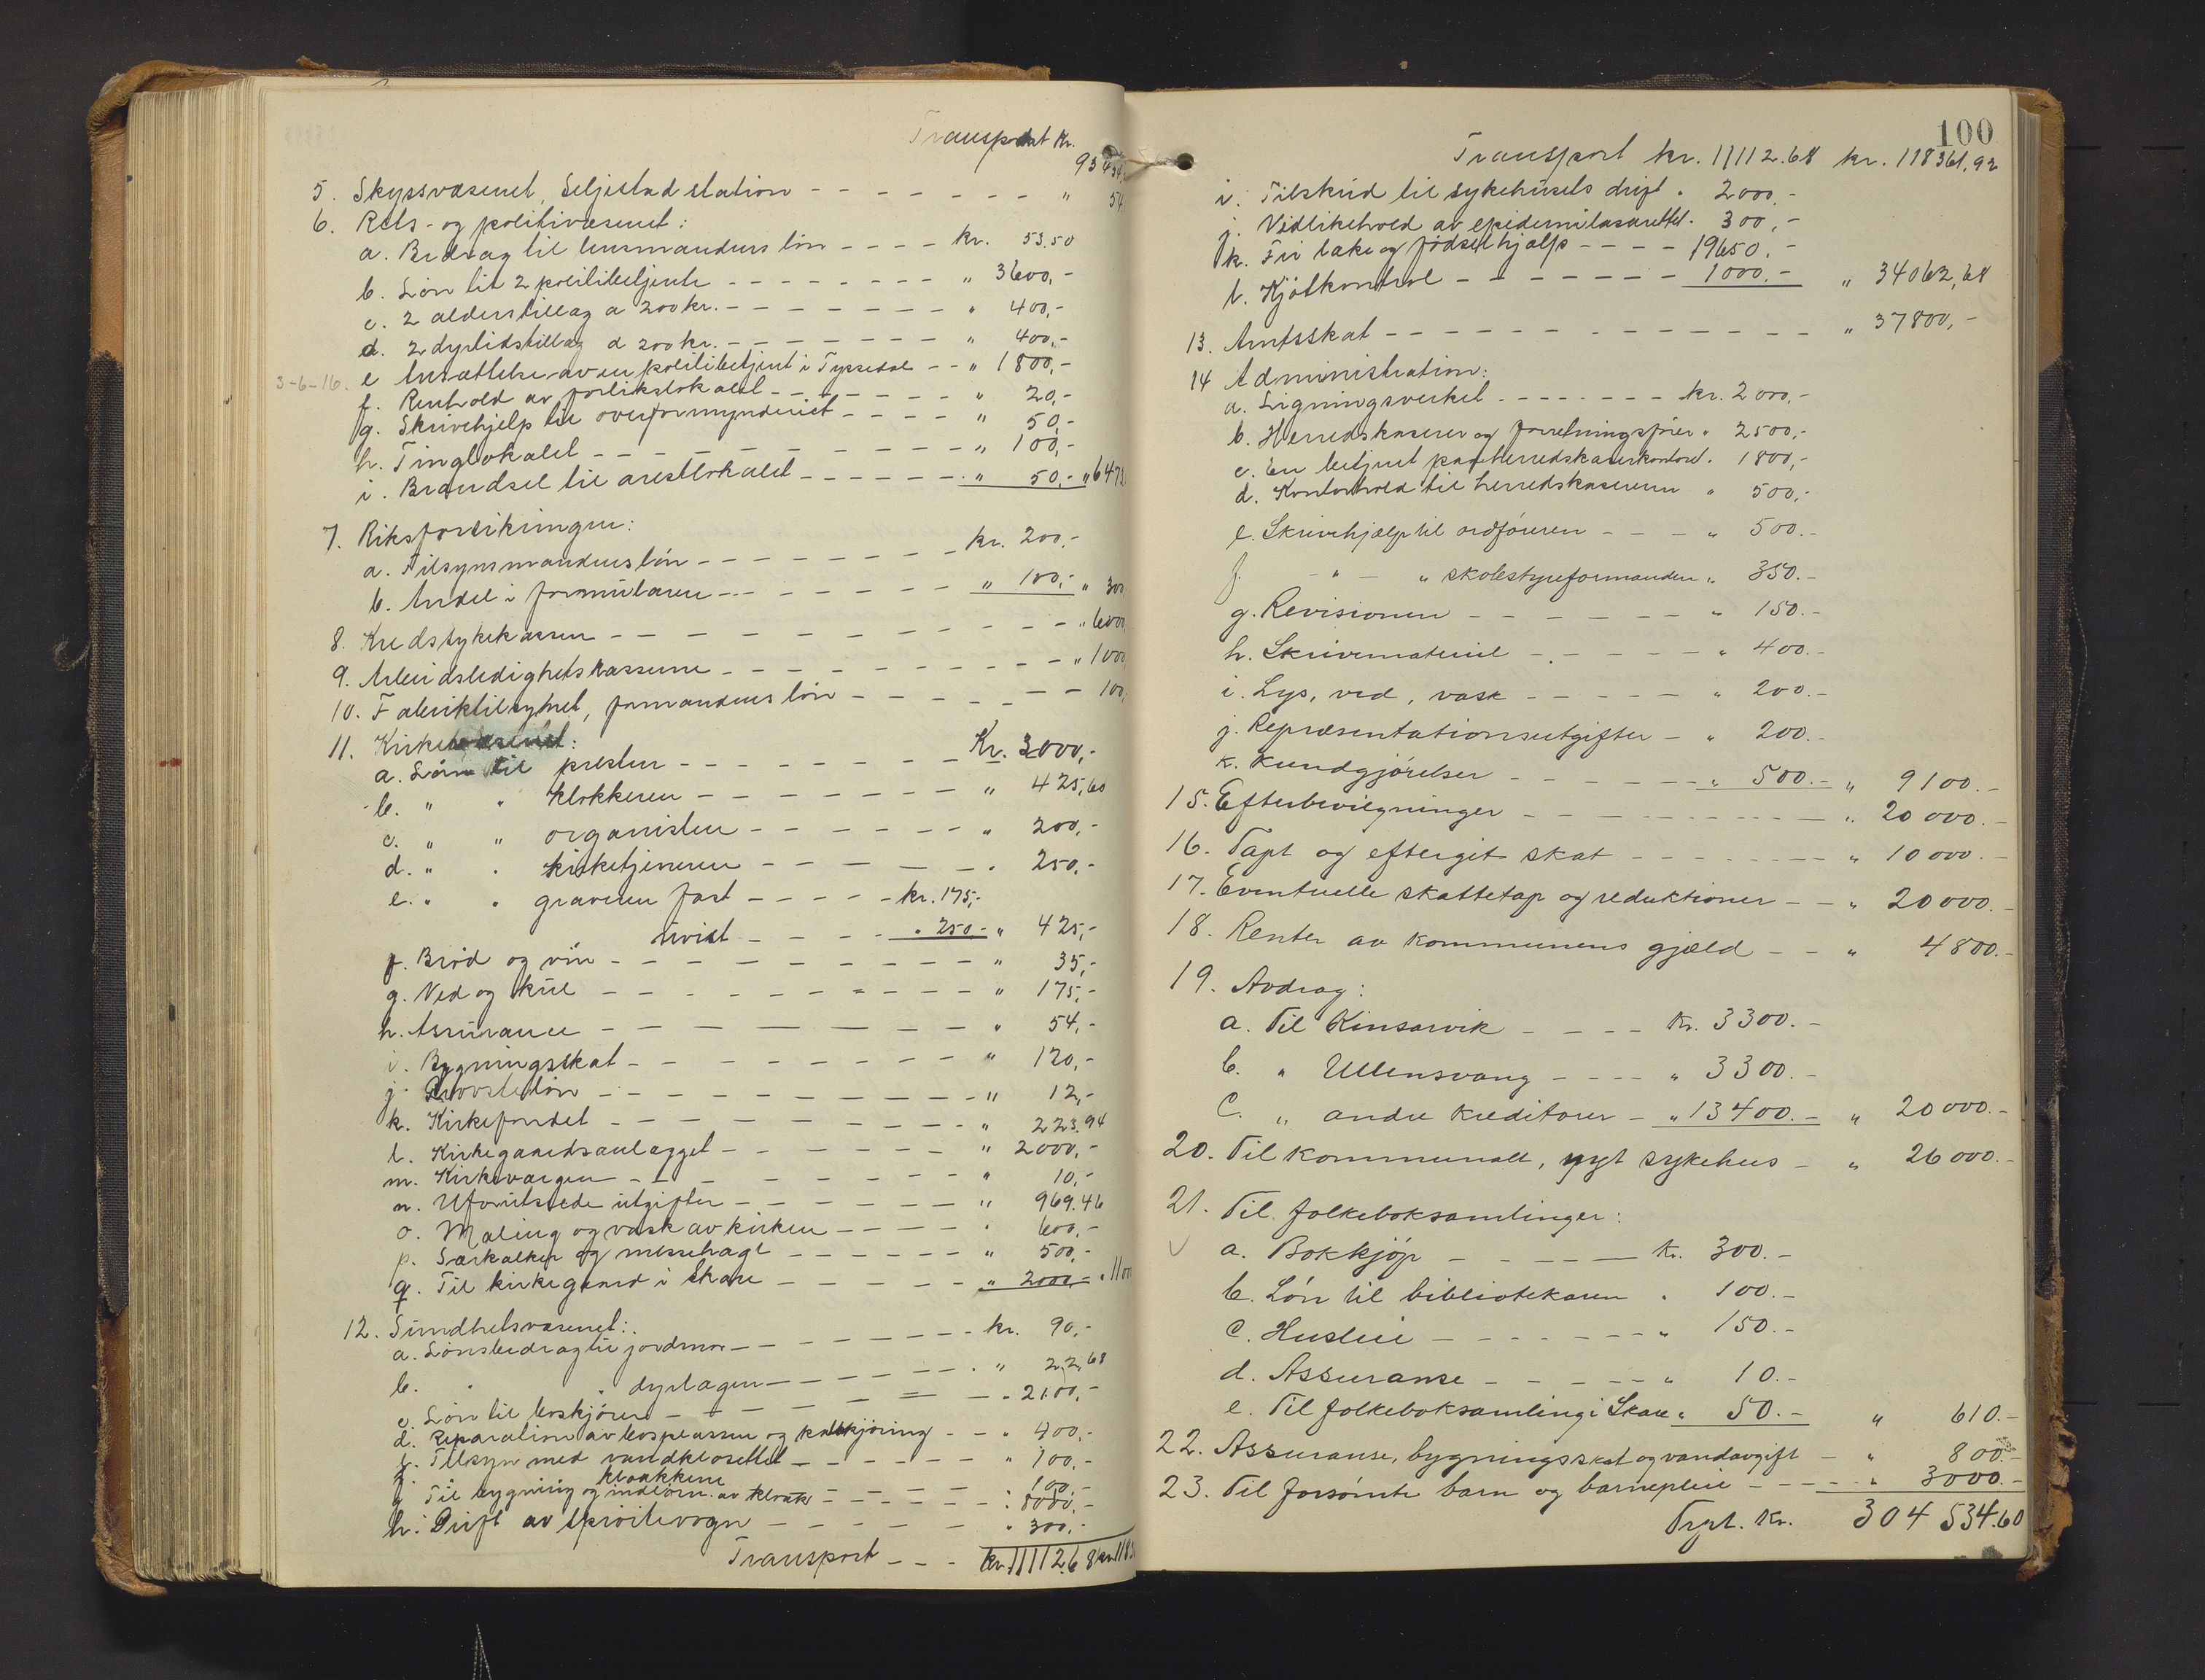 Transport Kr.
5. Skyssvæsenet, Seljestad station - - - - - - - "
6. Rets- og politivæsenet:
a. Bidrag til lensmandens løn - - - - kr. 53.50
b. Løn til 2 politibetjente - - - - - - - - " 3600,-
c. 2 alderstillæg a 200 kr. - - - - - - - " 400,-
d. 2 dyrtidstillæg a 200 kr. - - - - - - - " 400,-
3-6-16. e Ansættelse av en politibetjent i Tyssedal - - " 1800,-
f. Renhold av forlikslokalet - - - - - - - " 20,-
g. Skrivehjelp til overformynderiet - - - - " 50,-
h. Tinglokalet - - - - - - - - - - - " 100,-
i. Brændsel til arestlokalet - - - - - - - " 50,- "
7. Riksforsikringen:
a. Tilsynsmandens løn - - - - - - - - kr. 200,-
b. Andel i formularer - - - - - - - - " 100,- " 300,
8. Kredssykekassen - - - - - - - - - - - - " 6000,
9. Arbeidsledighetskasserne - - - - - - - - - - - " 1000
10. Fabriktilsynet, formandens løn - - - - - - 100,
11. Kirkevæsenet:
a. Løn til presten - - - - - - - - Kr. 3000,-
b. " " klokkeren - - - - - - - - " 425,60
c. " " organisten - - - - - - - " 200,-
d. " " kirketjeneren - - - - - - " 250,-
e. " " graveren fast - - - - - kr. 175,-
uvist - - - - " 250.- " 425,-
f. Brød og vin - - - - - - - - - - - " 35,-
g. Ved og kul - - - - - - - - - - - " 175,-
h. Assurance - - - - - - - - - " 54,-
i. Bygningsskat - - - - - - - - - " 120,-
j. Provsteløn - - - - - - - - - - - " 12,-
k. Kirkefondet - - - - - - - - - - " 223.94
l. Kirkegaardsanlægget - - - - - - - " 2000,-
m. Kirkevergen - - - - - - - - - " 10,-
n. Uforutsede utgifter - - - - - - - " 969.46
o. Maling og vask av kirken - - - - - " 600,-
p. Særkalker og messehagl - - - - - - " 500,-
q. Til kirkegaard i Skare - - - - - - " 2000,- "
12. Sundhetsvæsenet:
a. Lønsbidrag til jordmor - - - - - - - - kr. 90,-
b. " " dyrlægen - - - - - - - " 22,68
c. Løn til boskjører - - - - - - - - - " 2100,-
d. Reparation av bosplassen og kalkkjøring - - " 400,-
e. Tilsyn med vandklosettet - - - - - - " 100,-
f. " " kloakkene - - - - - 100,-
g Til bygning og indløsn. av kloak - - - - - " 8000,-
h. Drift av sprøitevogn - - - - - - - " 300,-
Transport - - - kr. 11112.68
100
Transport kr. 11112.68 kr. 118361,92
i. Tilskud til sykehusets drift " 2000,-
j. Vidlikehold av epidemilasarettet " 300,-
k. Fri læke og fødselhjælp - - - - 19650,-
l. Kjøtkontrol - - - - - - - - 1000.- " 34062,68
13. Amtsskat - - - - - - - - - - - - - " 37800,-
14 Administration:
a. Ligningsverket - - - - - - - kr. 2000,-
b. Herredskaserer og forretningsfører " 2500,-
c. En betjent paa herredskaserkontoret " 1800,-
d. Kontorhold til herredskasereren " 500,-
e. Skrivehjælp til ordføreren - - - " 500.-
f. - " - " skolestyreformanden " 350.-
g. Revisionen - - - - - - - " 150.-
h. Skrivemateriel - - - - - - " 400.-
i. Lys, ved, vask - - - - - " 200.-
j. Repræsentationsutgifter - " 200.-
k. Kundgjørelser - - - - - - " 500.- " 9100.-
15. Efterbevilgninger - - - - - - - - - - " 20000.-
16. Tapt og eftergit skat - - - - - - - - " 10000.-
17. Eventuelle skattetap og reduktioner - - " 20000.-
18. Renter av kommunens gjæld - - " 4800.-
19. Avdrag:
a. Til Kinsarvik - - - - Kr. 3300.-
b. " Ullensvang - - - - " 3300.-
c. " andre kreditorer - " 13400.- " 20000.-
20. Til kommunalt, nyt sykehus - " 26000.-
21. Til folkeboksamlinger:
a. Bokkjøp - - - - - Kr. 300.-
b. Løn til bibliotekaren " 100.-
c. Husleie - - - - - - - " 150.-
d. Assuranse - - - - - - " 10.-
e. Til folkeboksamling i Skare " 50.- " 610.-
22. Assuranse, bygningsskat og vandavgift - " 800.-
23. Til forsømte barn og barnepleie - - - - " 3000.-
Trpt. Kr. 304 534.60